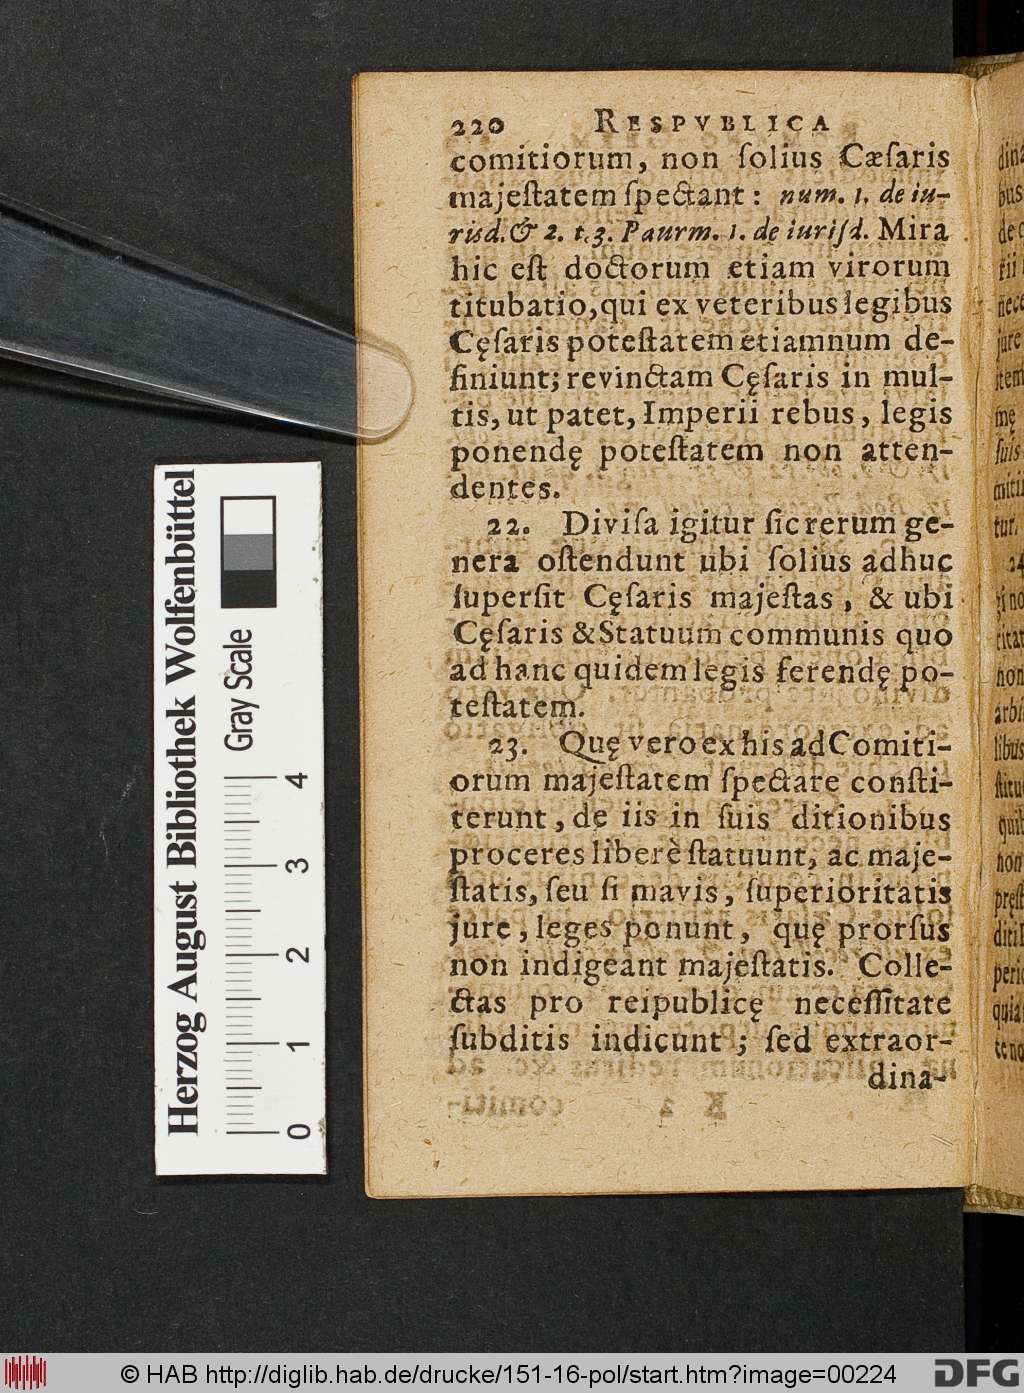 220 RESPVBLICA
comitiorum, non ſolius Cæſaris
majeſtatem ſpectant: num. 1. de iu-
risd. & 2. t.3. Paurm. 1. de iuriſd. Mira
hic eſt doctorum etiam virorum
titubatio, qui ex veteribus legibus
Cęſaris poteſtatem etiamnum de-
finiunt; revinctam Cęſaris in mul-
tis, ut patet, Imperii rebus, legis
ponendę poteſtatem non atten-
dentes.
22. Diviſa igitur ſic rerum ge-
nera oſtendunt ubi ſolius adhuc
ſuperſit Cęſaris majeſtas, & ubi
Cęſaris & Statuum communis quo
ad hanc quidem legis ferendę po-
teſtatem.
23. Quę vero ex his ad Comiti-
orum majeſtatem ſpectare conſti-
terunt, de iis in ſuis ditionibus
proceres liberè ſtatuunt, ac maje-
ſtatis, ſeu ſi mavis, ſuperioritatis
jure, leges ponunt, quę prorſus
non indigeant majeſtatis. Colle-
ctas pro reipublicę neceſſitate
ſubditis indicunt; ſed extraor-
dina-
Herzog August Bibliothek Wolfenbüttel
Gray Scale
0 1 2 3 4
© HAB http://diglib.hab.de/drucke/151-16-pol/start.htm?image=00224
DFG